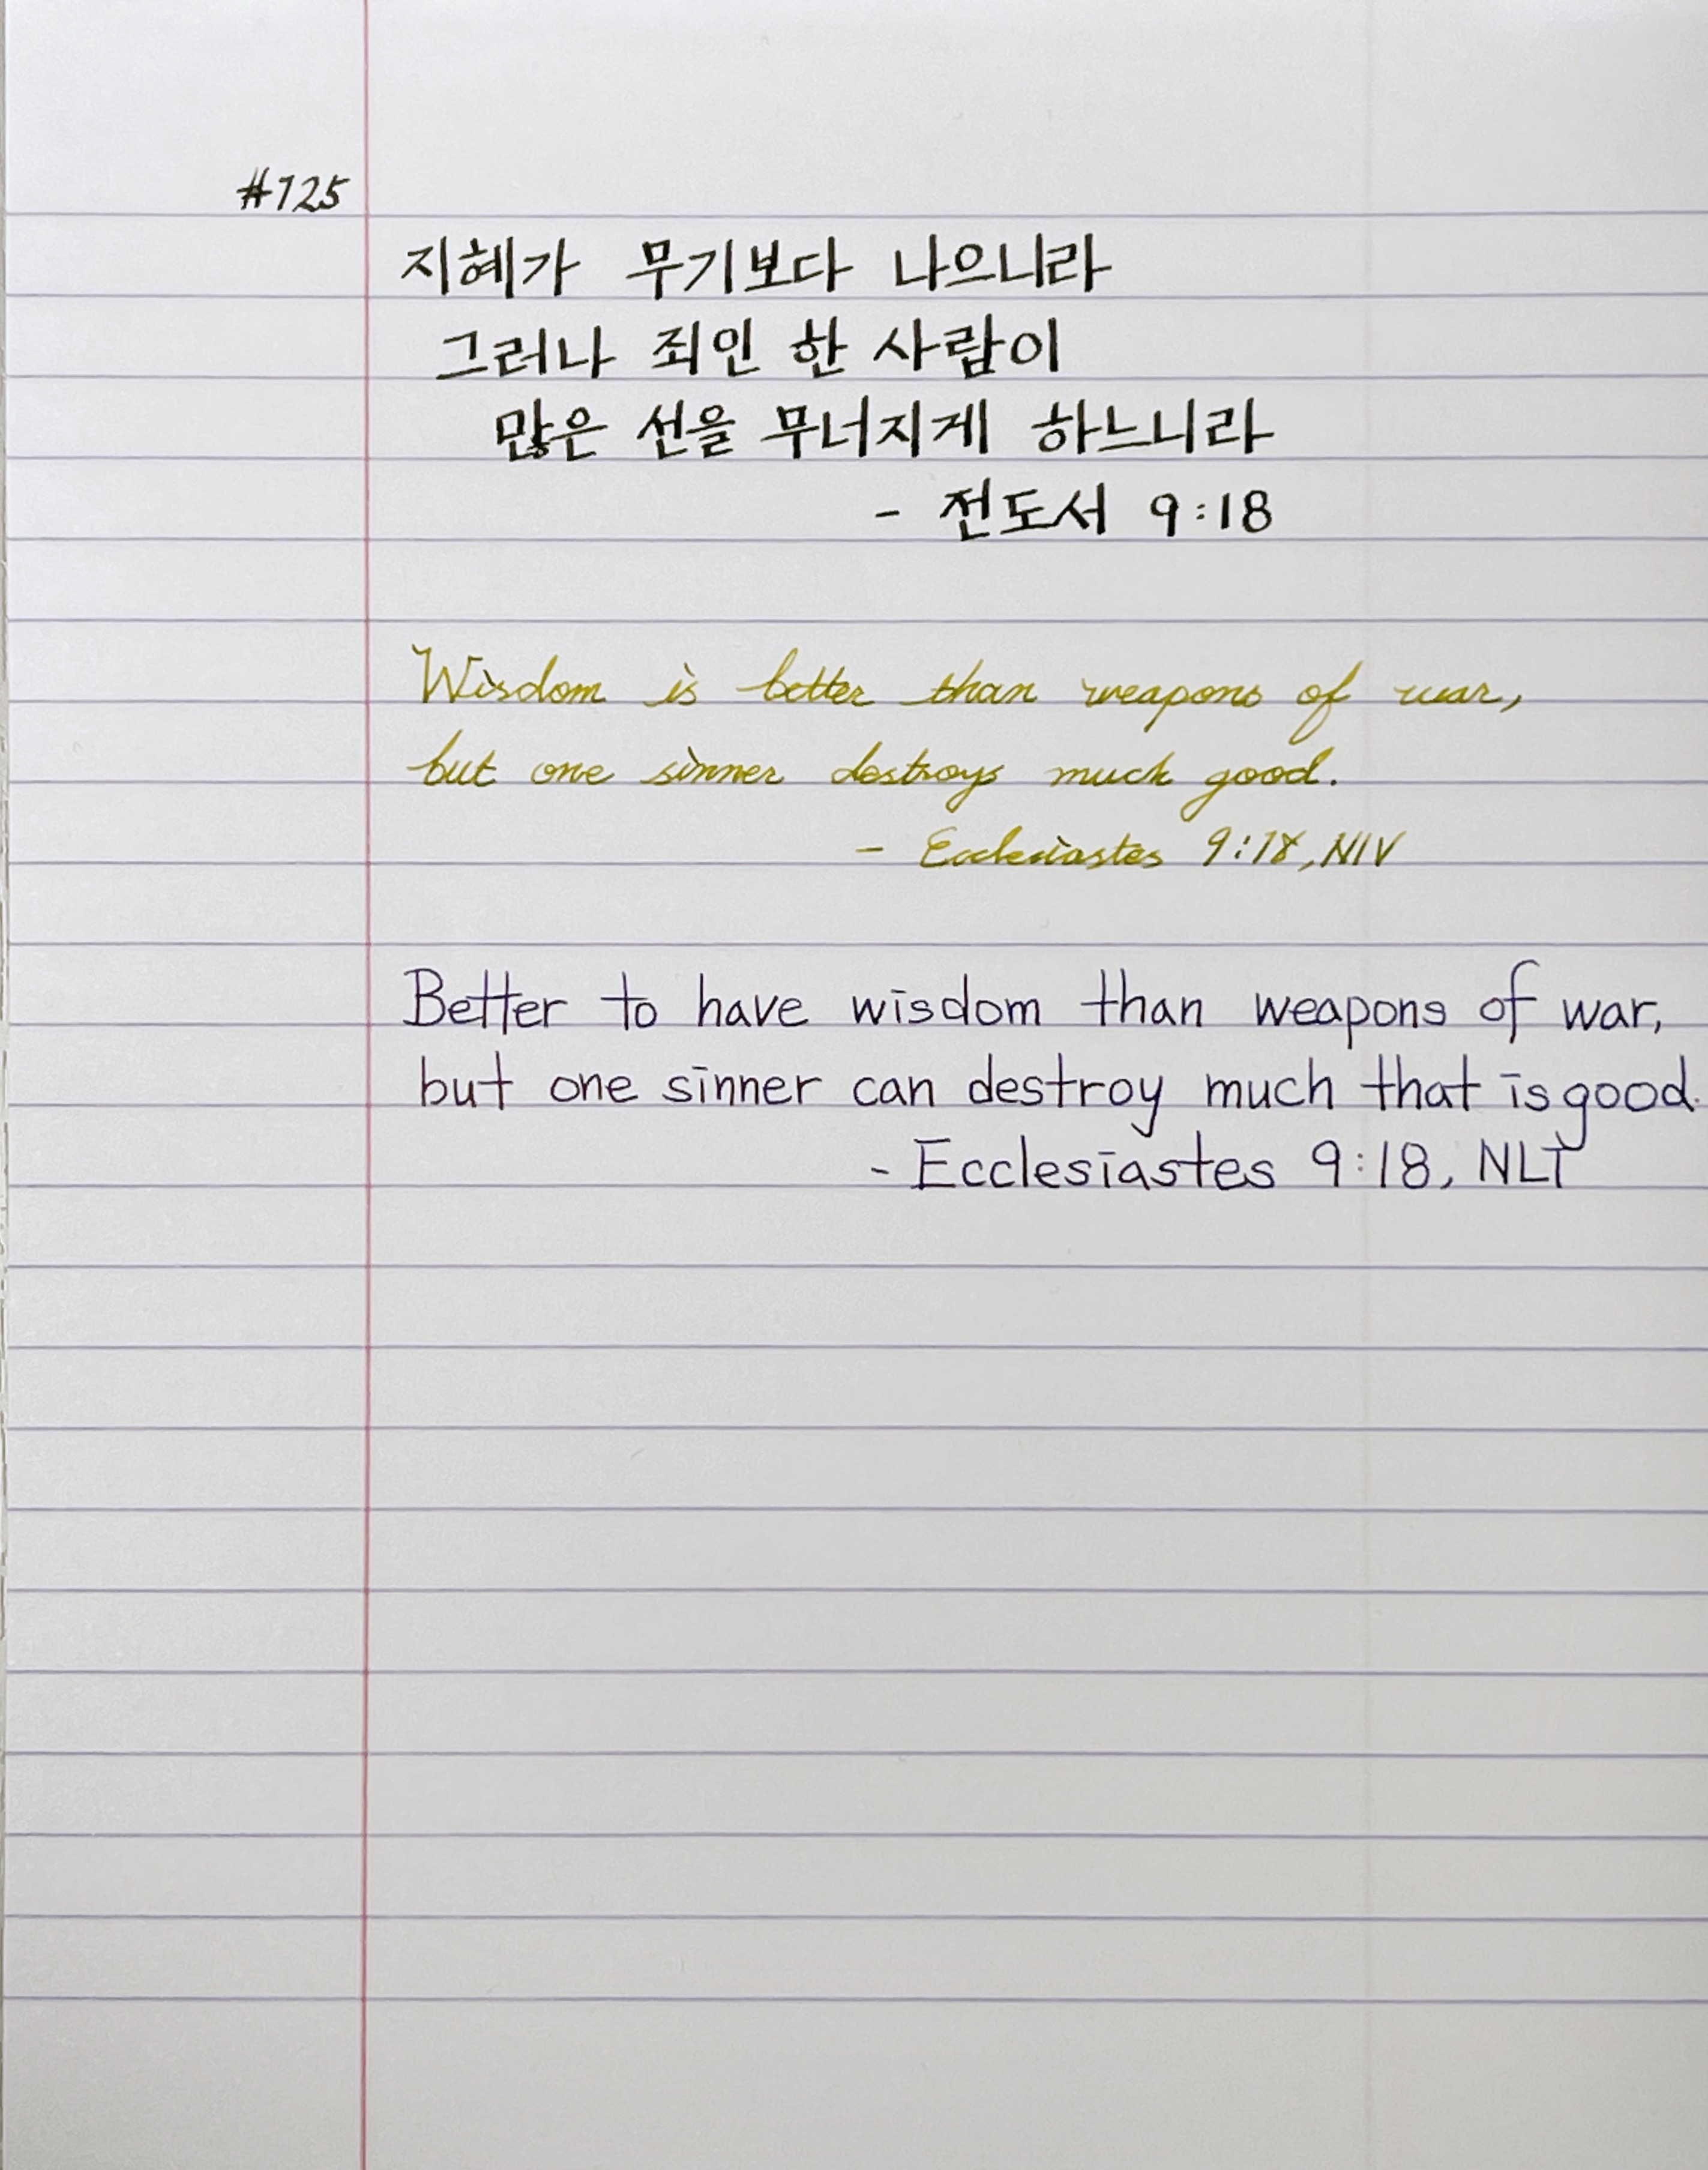 #125
지혜가 무기보다 나으니라
그러나 죄인 한 사람이
많은 선을 무너지게 하느니라
- 전도서 9:18
Wisdom is better than weapons of war,
but one sinner destroys much good.
- Ecclesiastes 9:18, NIV
Better to have wisdom than weapons of war,
but one sinner can destroy much that is good.
- Ecclesiastes 9:18, NLT